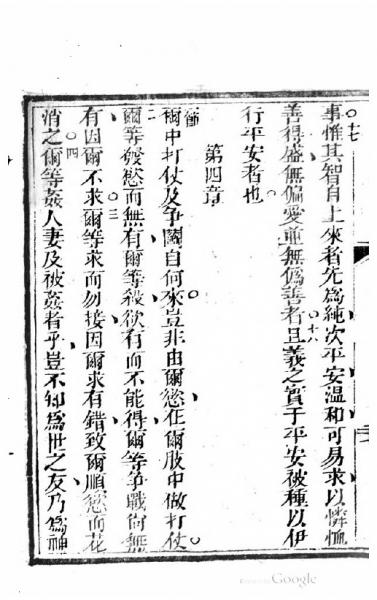 十七
事惟其智自上來者先爲純次平安溫和可易求以憐恤
善得盛無偏愛並無僞善者十八且義之實于平安被種以伊
行平安者也
第四章
一節
爾中打仗及爭鬭自何來豈非由爾慾在爾肢中做打仗
二
爾等發慾而無有爾等殺欲有而不能得爾等爭戰尚無
有因爾不求三爾等求而勿接因爾求有錯致爾順慾而花
消之四爾等姦人妻及被姦者乎豈不知爲世之友乃爲神
Google